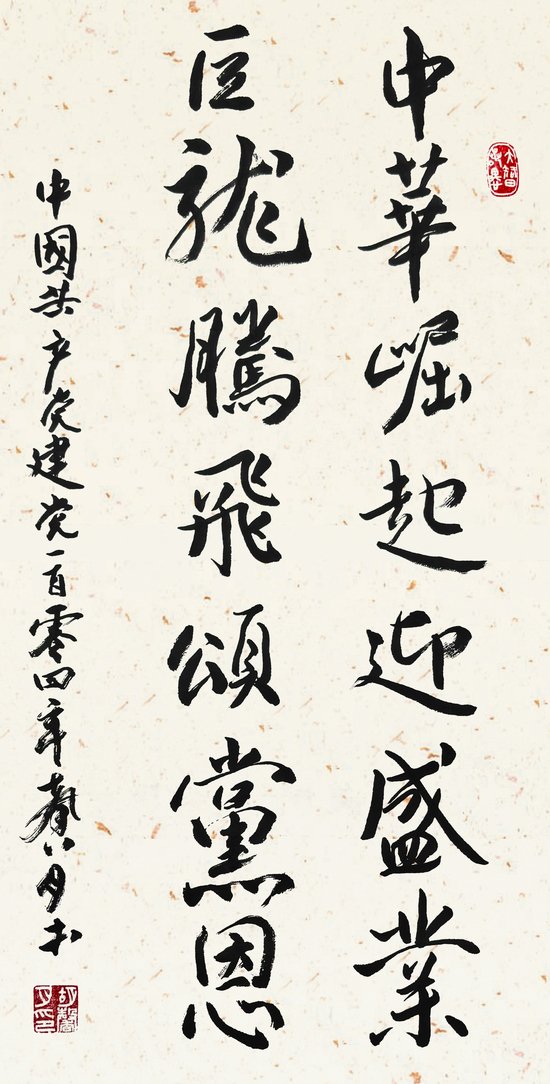 中華崛起迎盛業
巨龍騰飛頌黨恩
中國共产党建党一百零四年馨月书
胡馨月印